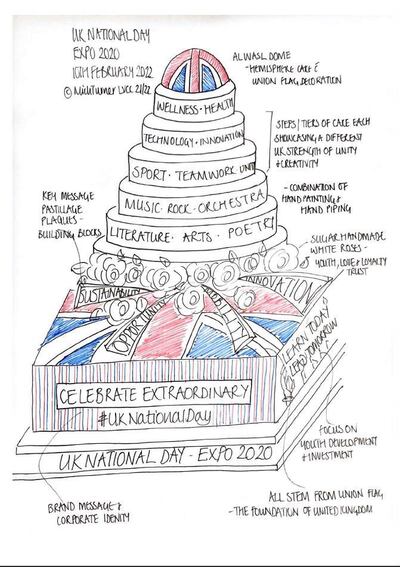 UK NATIONAL DAY
EXPO 2020
10TH FEBRUARY 2022
AL WASL DOME
- HEMISPHERE CAKE &
UNION FLAG DECORATION
WELLNESS · HEALTH
TECHNOLOGY · INNOVATION
SPORT · TEAMWORK UNITY
MUSIC · ROCK · ORCHESTRA
LITERATURE · ARTS · POETRY
STEPS / TIERS OF CAKE EACH
SHOWCASING A DIFFERENT
UK STRENGTH OF UNITY
& CREATIVITY
- COMBINATION OF
HAND PAINTING &
HAND PIPING
KEY MESSAGE
PASTILLAGE
PLAQUES -
BUILDING BLOCKS
SUGAR HANDMADE
WHITE ROSES -
YOUTH, LOVE & LOYALTY
TRUST
SUSTAINABILITY
OPPORTUNITY
INNOVATION
LEARN TODAY
LEAD TOMORROW
CELEBRATE EXTRAORDINARY
#UKNationalDay
UK NATIONAL DAY - EXPO 2020
FOCUS ON
YOUTH DEVELOPMENT
& INVESTMENT
BRAND MESSAGE &
CORPORATE IDENITY
ALL STEM FROM UNION FLAG
- THE FOUNDATION OF UNITED KINGDOM